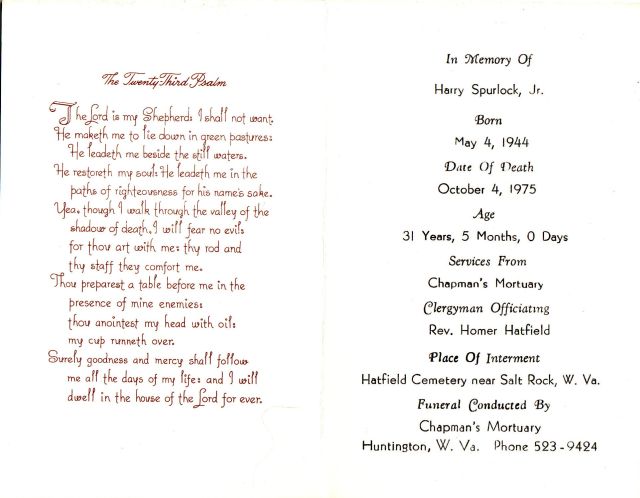 The Twenty-Third Psalm
The Lord is my Shepherd: I shall not want.
He maketh me to lie down in green pastures:
He leadeth me beside the still waters.
He restoreth my soul: He leadeth me in the
paths of righteousness for his name's sake.
Yea, though I walk through the valley of the
shadow of death, I will fear no evil:
for thou art with me: thy rod and
thy staff they comfort me.
Thou preparest a table before me in the
presence of mine enemies:
thou anointest my head with oil:
my cup runneth over.
Surely goodness and mercy shall follow
me all the days of my life: and I will
dwell in the house of the Lord for ever.
In Memory Of
Harry Spurlock, Jr.
Born
May 4, 1944
Date Of Death
October 4, 1975
Age
31 Years, 5 Months, 0 Days
Services From
Chapman's Mortuary
Clergyman Officiating
Rev. Homer Hatfield
Place Of Interment
Hatfield Cemetery near Salt Rock, W. Va.
Funeral Conducted By
Chapman's Mortuary
Huntington, W. Va. Phone 523-9424